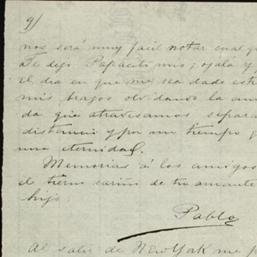 9/
nos será muy facil notar cual qu
Te dejo Papacito mio; ojalá y
el dia en que me sea dado estre
mis brazos olvidando la am
da que atravesamos separa
distancia y por un tiempo q
una eternidad.
Memorias á los amigos
de tierno cariño de tu amante
hijo
Pablo
Al salir de New York me p